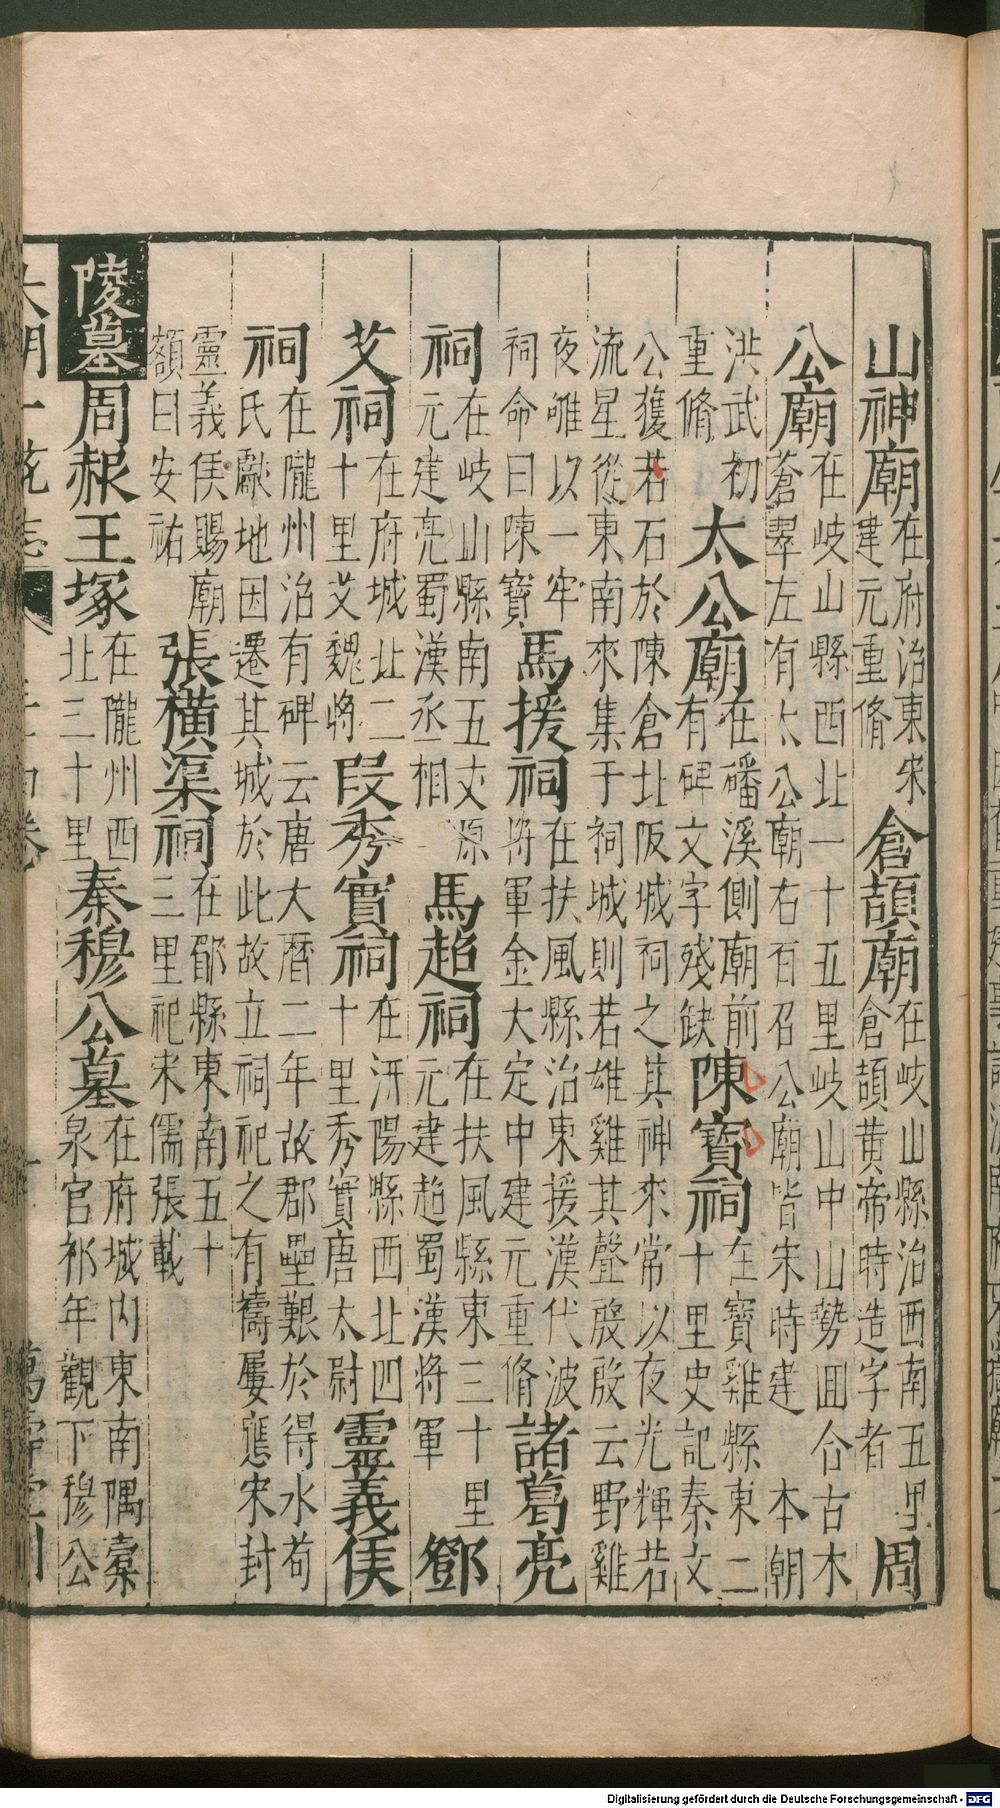 山神廟在府治東宋建元重脩 倉頡廟在岐山縣治西南五里倉頡黄帝時造字者 周
公廟在岐山縣西北一十五里岐山中山勢回合古木蒼翠左有太公廟右有召公廟皆宋時建 本朝
洪武初重脩 太公廟在磻溪側廟前有碑文字殘缺 陳寶祠在寶雞縣東二十里史記秦文
公獲若石於陳倉北阪城祠之其神來常以夜光輝若流星從東南來集于祠城則若雄雞其聲殷殷云野雞
夜雊以一牢祠命曰陳寶 馬援祠在扶風縣治東援漢代波將軍金大定中建元重脩 諸葛亮
祠在岐山縣南五丈源元建亮蜀漢丞相 馬超祠在扶風縣東三十里元建超蜀漢將軍 鄧
艾祠在府城北二十里艾魏將 段秀實祠在汧陽縣西北四十里秀實唐太尉 靈義侯
祠在隴州治有碑云唐大曆二年故郡壘艱於得水苟氏獻地因遷其城於此故立祠祀之有禱屢應宋封
靈義侯賜廟額曰安祐 張橫渠祠在郿縣東南五十三里祀宋儒張載
陵墓 周赧王塚在隴州西北三十里 秦穆公墓在府城內東南隅橐泉宮祁年觀下穆公
大明一统志
萬壽堂刊
Digitalisierung gefördert durch die Deutsche Forschungsgemeinschaft - DFG